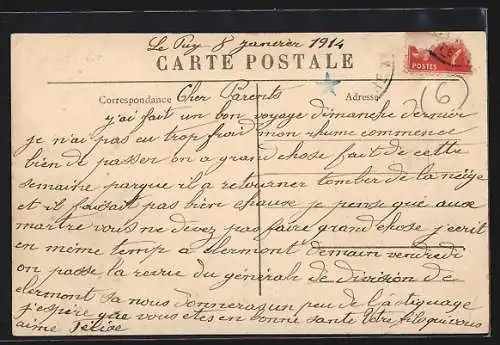 Le Puy 8 janvier 1914
CARTE POSTALE
POSTES
Correspondance
Adresse
6
Cher Parents
y'ai fait un bon voyage dimanche dernier
je n'ai pas eu trop froid mon rhume commence
bien de passer on a grand chose fait de cette
semaine parque il a retourner tomber de la neige
et il faisait pas bien chause je pense que aux
martre vous ne devez pas faire grand chose j'ecrit
en même temp a clermont demain vendredi
on passe la revue du général de division de
clermont sa nous donneras un peu de l'astiquage
j'espère que vous etes en bonne sante Votre fils qui vous
aime